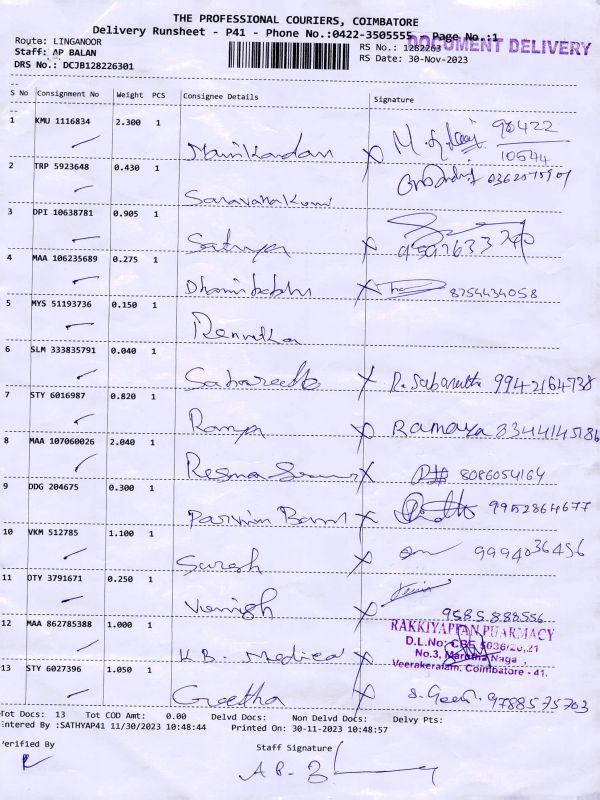 THE PROFESSIONAL COURIERS, COIMBATORE
Delivery Runsheet - P41 - Phone No.:0422-3505555 Page No.:1
DOCUMENT DELIVERY
Route: LINGANOOR
RS No.: 1282263
Staff: AP BALAN
RS Date: 30-Nov-2023
DRS No.: DCJB128226301
S No Consignment No Weight PCS Consignee Details Signature
1 KMU 1116834 2.300 1 Manikandan X 98422
10544
2 TRP 5923648 0.430 1 Saravanakumar
3 DPI 10638781 0.905 1 Sathya X
4 MAA 106235689 0.275 1 X 8754434058
5 MYS 51193736 0.150 1 Renuka
6 SLM 333835791 0.040 1 X R. Sabareetha 9942164738
7 STY 6016987 0.820 1 Ramya X Ramaya 8344145186
8 MAA 107060026 2.040 1 Resma X 8086054164
9 DDG 204675 0.300 1 Parvin Banu X 9952864677
10 VKM 512785 1.100 1 Suresh X 9994036456
11 OTY 3791671 0.250 1 X 9585888556
12 MAA 862785388 1.000 1 K.B. Medical X
RAKKIYAPPAN PHARMACY
D.L.No: CBE 5036/20,21
No.3, Marutha Naga
Veerakeralam, Coimbatore - 41.
13 STY 6027396 1.050 1 Geetha X S. Geetha. 9788575703
Tot Docs: 13 Tot COD Amt: 0.00 Delvd Docs: Non Delvd Docs: Delvy Pts:
Entered By :SATHYAP41 11/30/2023 10:48:44 Printed On: 30-11-2023 10:48:57
Verified By
Staff Signature